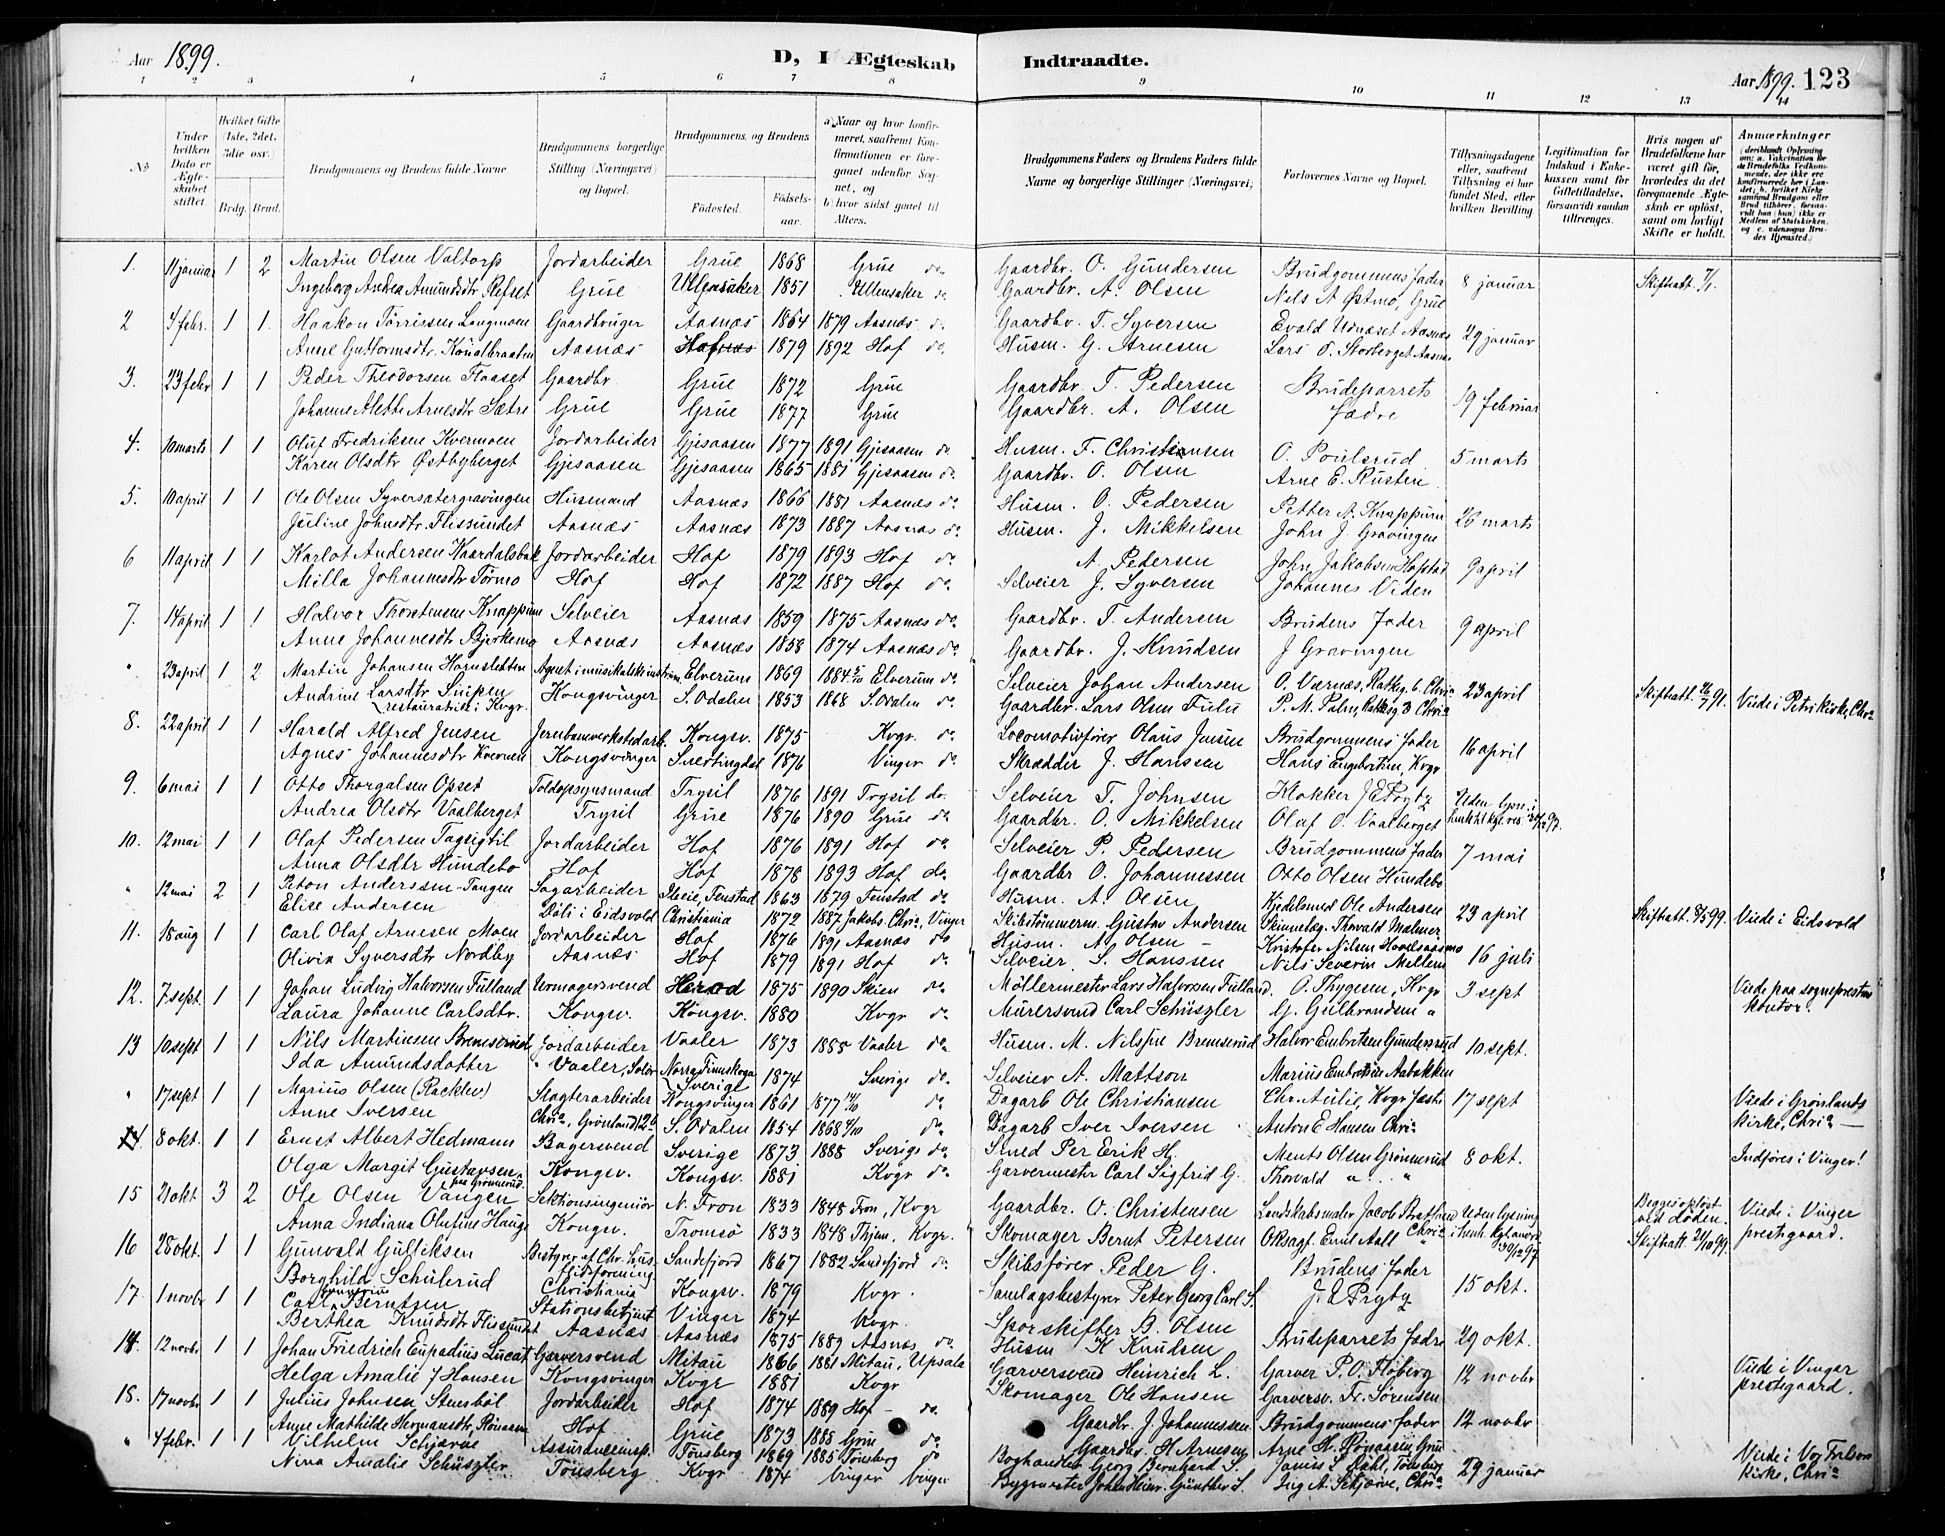 Aar 1899.
D, I Ægteskab Indtraadte.
Aar 1899. 123
1 2 3 4 5 6 7 8 9 10 11 12 13 14
No
Under hvilken Dato er Ægteskabet stiftet.
Hvilket Gifte (1ste, 2det, 3die osv.)
Brdg. Brud.
Brudgommens og Brudens fulde Navne
Brudgommens borgerlige Stilling (Næringsvei) og Bopæl.
Brudgommens og Brudens
Fødested.
Fødsels-aar.
a) Naar og hvor konfirmeret, saafremt Konfirmationen er foregaaet udenfor Sognet, og
b) hvor sidst gaaet til Alters.
Brudgommens Faders og Brudens Faders fulde Navne og borgerlige Stillinger (Næringsvei)
Forlovernes Navne og Bopæl.
Tillysningsdagene eller, saafremt Tillysning ei har fundet Sted, efter hvilken Bevilling
Legitimation for Indskud i Enkekassen samt for Giftetilladelse, forsaavidt saadan tiltrænges.
Hvis nogen af Brudefolkene har været gift før, hvorledes da det foregaaende Ægteskab er opløst, samt om lovligt Skifte er holdt.
Anmærkninger
1. 11 januar 1 2 Martin Olsen Valtorp Jordarbeider Grue 1868 Grue do. Gaardbr. O. Gundersen Brudgommens fader 8 januar Skifteatt. 7/1.
Ingeborg Andrea Amundsdtr. Refset Grue Ullensaker 1851 Ullensaker do. Gaardbr. A. Olsen Nels A Østmo, Grue
2 4 febr. 1 1. Haakon Tørrissen Langmoen Gaardbruger Aasnæs 1864 1879 Aasnæs do. Gaardbr. T. Syversen Evald Udnæset Aasnæs 29 januar
Anne Guttormsdtr. Aasnæs 1879 1892 Hof do. Husm. G. Arnesen Lars O. Storberget Aasnæs
3. 23 febr 1 1 Peder Theodorsen Flaaset Gaardbr. Grue 1872 Grue Gaardbr. T. Pedersen Brudeparrets 19 februar
Johanne Alette Arnesdtr. Sætre Grue Grue 1877 Grue Gaardbr. A. Olsen fædre
4. 10 marts 1 1 Oluf Fredriksen Kvermoen Jordarbeider Gjesaasen 1877 1891 Gjesaasen do Husm. F. Christiansen O. Poulsrud 5 marts
Karen Olsdtr Østbyberget Gjesaasen Gjesaasen 1865 1881 Gjesaasen do. Gaardbr. O. Olsen Arne E. Rusten
5. 10 april 1 1 Ole Olsen Syversætergravingen Husmand Aasnæs 1866 1881 Aasnæs do. Husm. O. Pedersen Petter A. Knappum 26 marts
Juline Johnsdtr. Flissundet Aasnæs Aasnæs 1873 1887 Aasnæs do. Husm. J. Mikkelsen John J. Gravingen
6 11 april 1 1 Karlot Andersen Kaardalsbak Jordarbeider Hof 1879 1893 Hof do A Pedersen John Jakobsen Hofstad 9 april
Milla Johannesdtr Tørmo Hof Hof 1872 1887 Hof do. Selveier J. Syversen Johannes Viden
7. 14 april 1 1 Halvor Thorstensen Knappum Selveier Aasnæs 1859 1875 Aasnæs do. Gaardbr. T. Andersen Brudens fader 9 april
Anne Johannesdtr Bjerkemo Aasnæs Aasnæs 1858 1874 Aasnæs do. Gaardbr. J. Knudsen J Gravingen
" 23 april 1 2 Martin Johansen Hagnsletten Agent i musikalsk instrum. Elverum 1869 1884 Elverum do. Selveier Johan Andersen O. Værnæs, 23 april
Andrine Larsdtr Snipen Kongsvinger S. Odalen 1853 1868 S. Odalen do Gaardbr. Lars Olsen Fulu P. M. Palm, Chria Viede i Petri Kirke, Chra
restauratrice i Kvgr.
8. 22 april 1 1 Harald Alfred Jensen Jernbaneverkstedarb. Kongsv. 1875 Kvgr. do. Locomotivfører Olaus Jensen Brudgommens fader 16 april
Agnes Johannesdtr Kvernen Kongsvinger 1876 Vinger do. Skrædder J. Hanssen Hans Engebretsen, Kvgr
9. 6 mai 1 1 Otto Thorgalsen Opset Toldopsynsmand Trysil 1876 1891 Trysil do. Selveier T. Johnsen Klokker J E Prytz
Andrea Olsdtr Vaalberget Trysil Grue 1876 1890 Grue do Gaardbr. O. Mikkelsen Olaf O. Vaalberget
10. 12 mai 1 1 Olaf Pedersen Tagsigtil Jordarbeider Hof 1876 1891 Hof do. Selveier P. Pedersen Brudgommens fader 7 mai
Anna Olsdtr Hundebo Hof Hof 1878 1893 Hof do. Gaardbr O. Johannessen Otto Olsen Hundebo
" 12 mai 2 1 Peton Anderssen-Tangen Sagarbeider Fenstad 1863 1879 Fenstad do Husm. A. Olsen Kjedelsmed Ole Andersen 23 april Skifteatt. 99. Viede i Eidsvold
Elise Andersen Døli i Eidsvold Christiania 1872 1887 Jakobs. Chria, Vinger Skibstømmerm. Gustav Andersen Thorvald Malmer
11. 18 aug 1 1 Carl Olaf Arnesen Moen Jordarbeider Hof 1876 1891 Aasnæs do Husm. A. Olsen Kristofer Nilsen Hovelsaasmo 16 juli
Olivia Syversdtr Nordby Aasnæs Hof 1879 1891 Hof do. Selveier. S. Hanssen Nils Severin Mellem
12. 7 sept 1 1 Johan Ludvig Halvorsen Fulland Urmagersvend 1875 1890 Skien do. Møllermester Lars Halvorsen Fulland. O. Thygesen, Kvgr 3 sept Viede paa sogneprestens kontor.
Laura Johanne Carlsdtr. Kongsv. Kongsv. 1880 Kvgr do. Murersvend Carl Schüszler G. Gulbrandsen "
13 10 sept 1 1 Nils Martinsen Bremserud Jordarbeider Vaaler 1873 1885 Vaaler do. Husm. M. Nilspre Bremserud Halvor Embretsen Gundersrud 10 sept.
Ida Amundsdatter Vaaler, Solør Norra Finnskoga Sverige 1874 Sverige do. Selveier A. Mattson Marius Embretsen Aabakken
" 17 sept 1 1 Marius Olsen (Racklev) Slagterarbeider Kongsvinger 1861 1877 do. Dagarb Ole Christiansen Chr. Aulie, Kvgr 17 sept Viede i Grønlands Kirke, Chria
Anne Iversen Chria, Grønland 12 b S. Odalen 1854 1868 do Dagarb Iver Iversen Anton E Hansen Chria
14. 8 okt. 1 1 Ernst Albert Hedmann Bagersvend Sverige 1873 1888 Sverige do. Smed Per Erik H. Ments Olsen Grønnerud 8 okt. Indføres i Vinger!
Olga Margit Gustavsen Kongsv. Kongsv. 1881 Kvgr do. Garvermester Carl Sigfrid G. Thorvald " "
15 21 okt 3 2 Ole Olsen Vangen Sektionsingeniør N. Fron 1833 1848 Fron, Kvgr Gaardbr. O. Christensen Landskabsmaler Uden lysning Begges opløst ved døden. Skifteatt. 21/10 99. Viede i Vinger prestegaard.
Anna Indiana Olufine Hauge Kongsv. Tromsø 1833 1848 Kvgr. Skomager Bernt Petersen Emil Aall Chria
16 28 okt. 1 1 Gunvald Gulliksen Bestyrer af Chr. Husflidsforening Sandefjord 1867 1882 Sandefjord do. Skibsfører Peder G. Brudens fader 15 okt.
Borghild Schulerud Christiania Kongsv. 1879 Kvgr. Samlagsbestyrer Peter Georg Carl S. J. E Prytz
17. 1 novbr 1 1 Carl Berntzen Stationsbetjent Vinger 1874 Kvgr. Sporskifter B. Olsen Brudeparrets fædre 29 okt.
Berthea Knudsdtr Flissundet Aasnæs Aasnæs 1875 1889 Aasnæs do. Husm K Knudsen
14. 12 novbr 1 1 Johan Friedrich Eupadius Lucat Garversvend Mitau 1866 1881 Mitau, Upsala Garversvend Heinrich L. Garver P. O. Fløberg 12 novbr Viede i Vinger prestegaard.
Helga Amalie J Hansen Kongsvinger Kvgr 1881 Kvgr Skomager Ole Hansen Garversv. Fr. Sørensen
18. 17 novbr 1 1 Julius Johnsen Stensbøl Jordarbeider Hof 1874 1889 Hof do. Gaardbr. J Johannessen Brudgommens fader 12 novbr
Anne Mathilde Hermansdtr, Rønaasen Hof Grue 1873 1888 Grue do Gaardbr. H Arnesen Arne H. Rønaasen Grue
" 4 febr. 1 1 Vilhelm Schjærve Tønsberg 1869 1885 Tønsberg do Boghandler Georg Bernhard S. Tønsberg 29 januar Viede i Vor Frelsers Kirke, Chria
Nina Amalie Schüszler Tønsberg Kvgr 1874 Vinger Vinger Johan Heinr. Günther S. Ing A. Schjærve, Chria